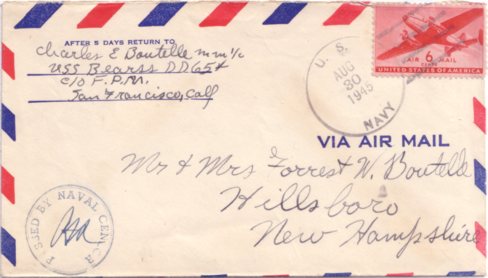 AFTER 5 DAYS RETURN TO
Charles E Boutelle mm 1/c
USS Bearss DD654
C/O F.P.M.
San Francisco, Calf
U. S.
AUG
30
1945
NAVY
AIR 6 MAIL
CENTS
UNITED STATES OF AMERICA
VIA AIR MAIL
Mr & Mrs Forrest W. Boutelle
Hillsboro
New Hampshire
SSED BY NAVAL CEN